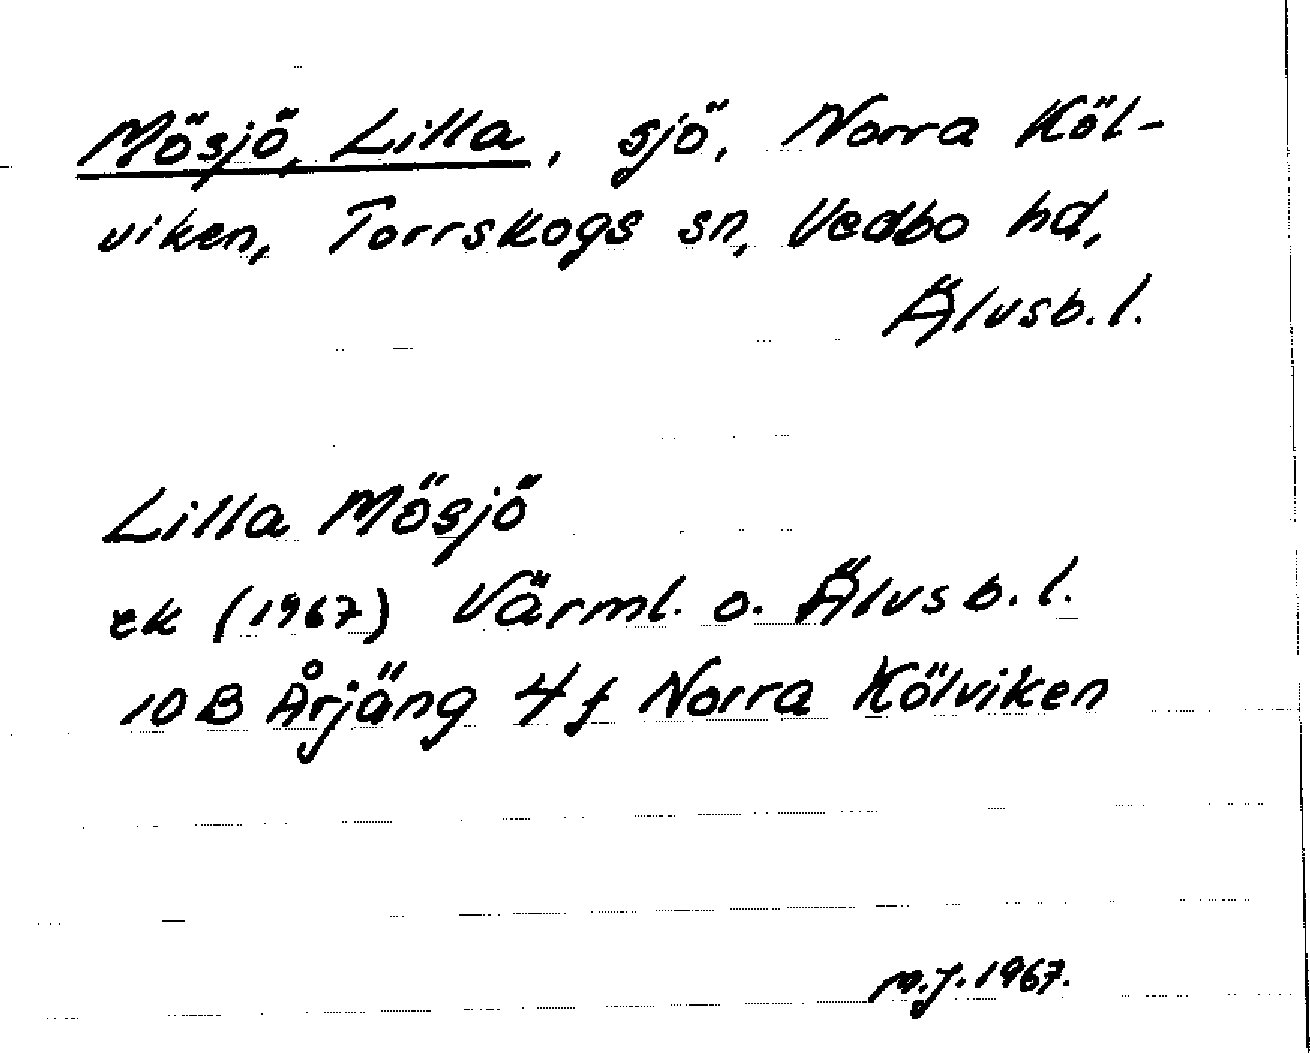 Mösjö, Lilla, sjö, Norra Köl-
viken, Torrskogs sn, Vedbo hd,
Älvsb. l.
Lilla Mösjö
ek (1967) Värml. o. Älvsb. l.
10B Årjäng 4f Norra Kölviken
M.J. 1967.